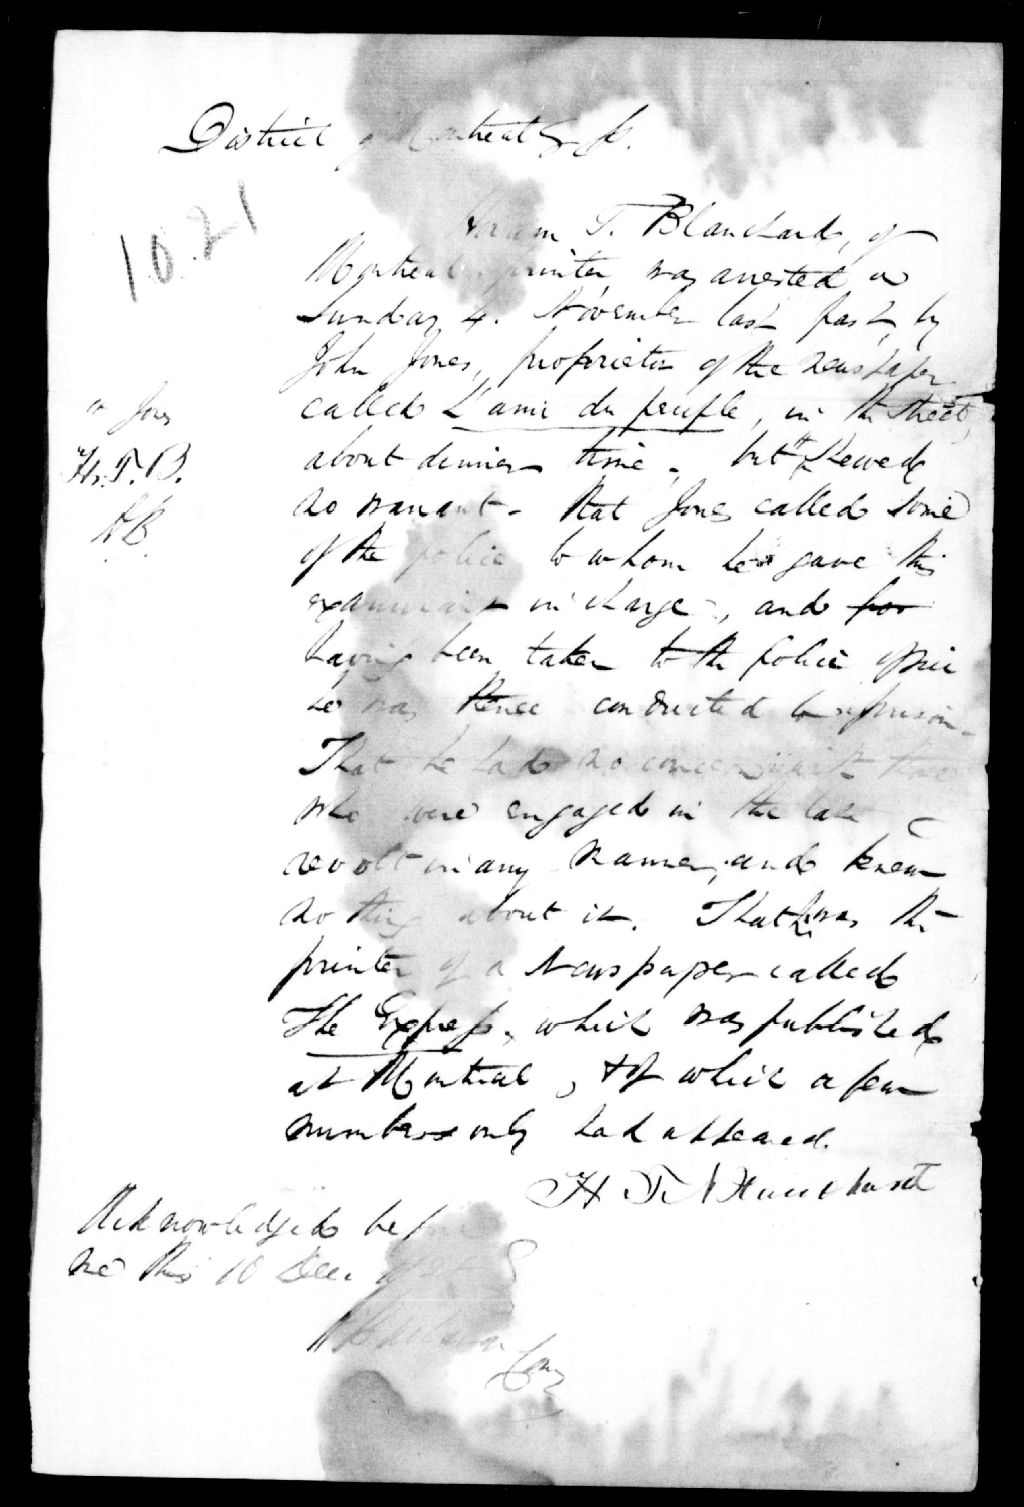 District of Montreal
1021
Hiram T. Blanchard, of
Montreal printer, was arrested on
Sunday 4. November last past, by
John Jones, proprietor of the newspaper
called L'ami du peuple, in the street,
about dinner time, but shewed
no warrant - that Jones called some
of the police to whom he gave this
examinant in charge -, and for
having been taken to the police office
he was thence conducted to prison -
That he had no concern with those
who were engaged in the late
revolt in any manner, and knew
nothing about it. That he was the
printer of a Newspaper called
The Express, which was published
at Montreal, & of which a few
numbers only had appeared.
* Jones
H. T. B.
H. T. Blanchard
Acknowledged before
me this 10 Dec.